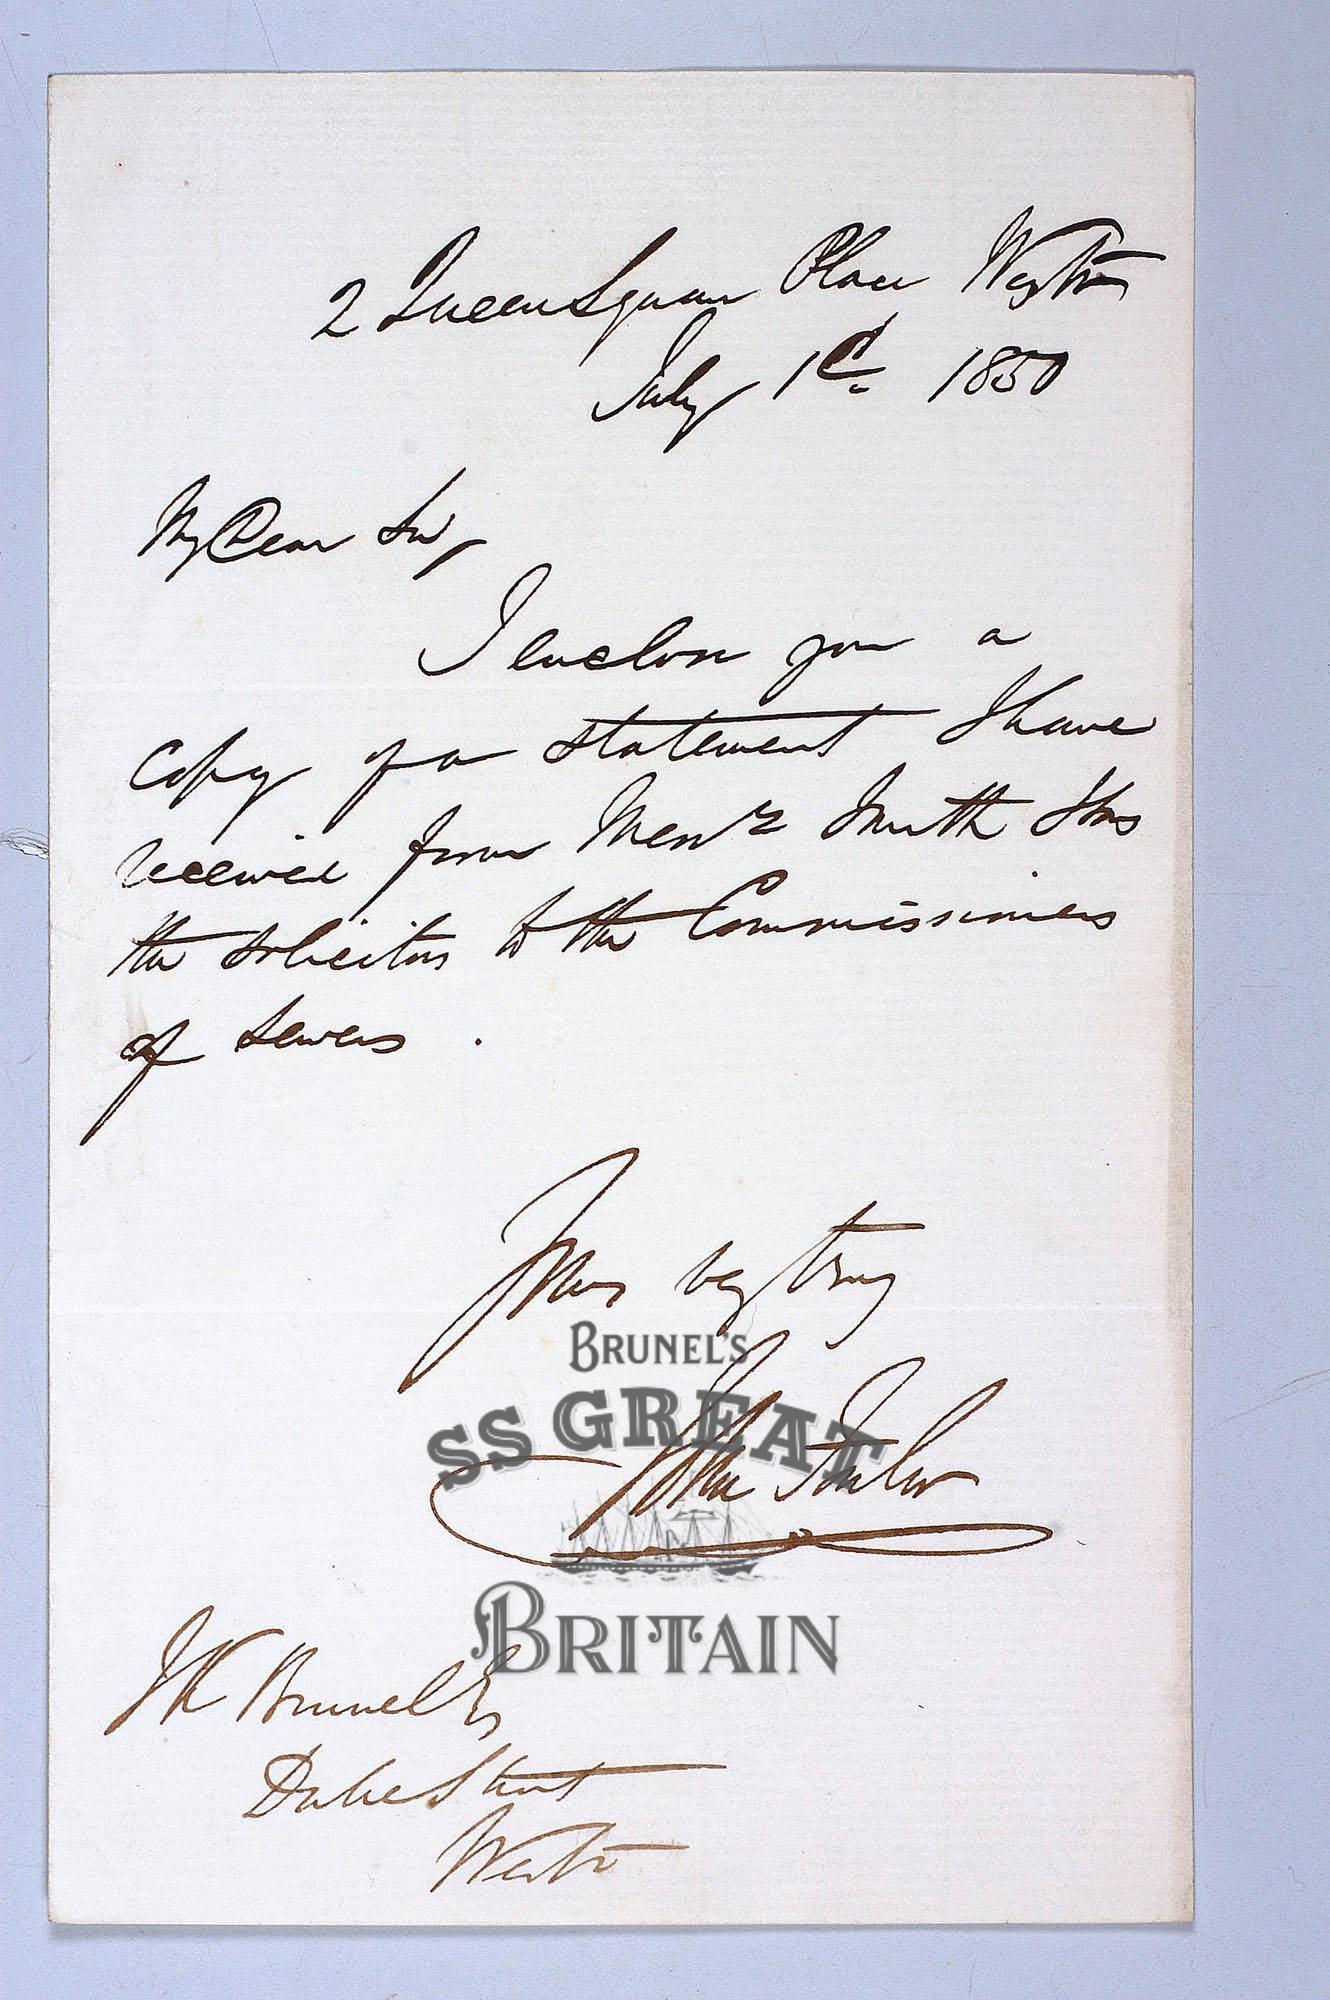 2 Queen Square Place Westr
July 1st 1850
My Dear Sir,
I enclose you a
copy of a statement I have
received from Messrs Smith & Sons
the solicitors to the Commissioners
of Sewers.
Yours very truly
BRUNEL'S
SS GREAT
John Fowler
BRITAIN
I K Brunel Esq
Duke Street
Westr